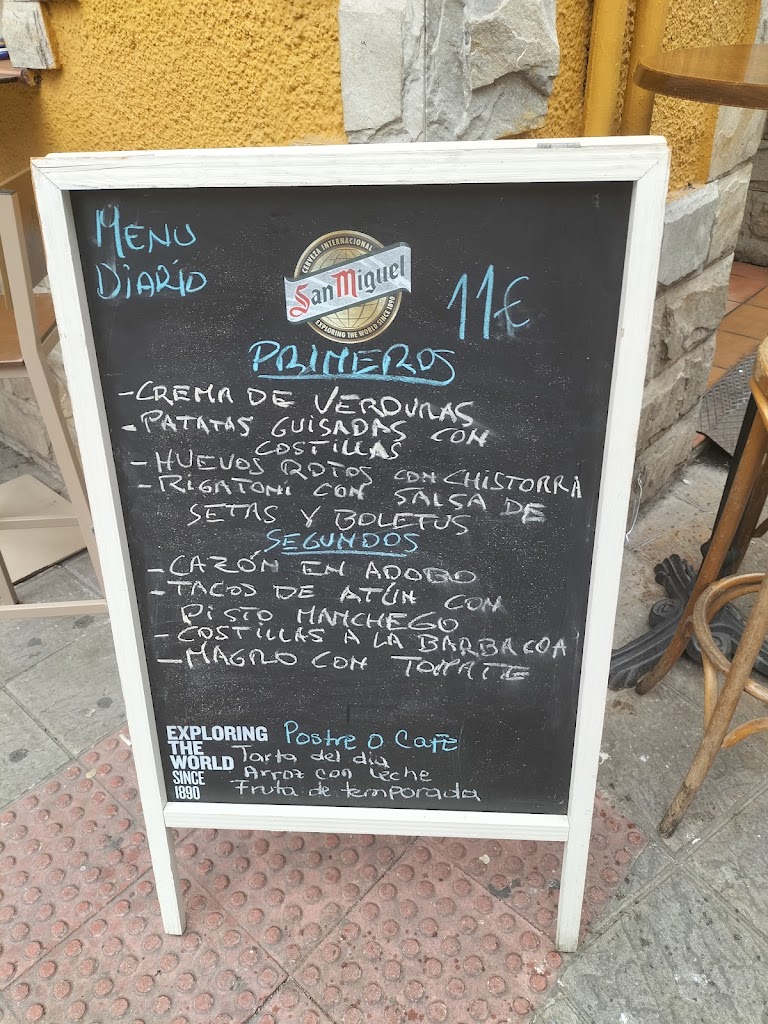 MENU
DIARIO
CERVEZA INTERNACIONAL
San Miguel
EXPLORING THE WORLD SINCE 1890
11€
PRIMEROS
-CREMA DE VERDURAS
-PATATAS GUISADAS CON
COSTILLAS
-HUEVOS ROTOS CON CHISTORRA
-RIGATONI CON SALSA DE
SETAS Y BOLETUS
SEGUNDOS
-CAZÓN EN ADOBO
-TACOS DE ATÚN CON
PISTO MANCHEGO
-COSTILLAS A LA BARBACOA
-MAGRO CON TOMATE
EXPLORING
THE
WORLD
SINCE
1890
Postre o Café
Tarta del día
Arroz con leche
Fruta de temporada